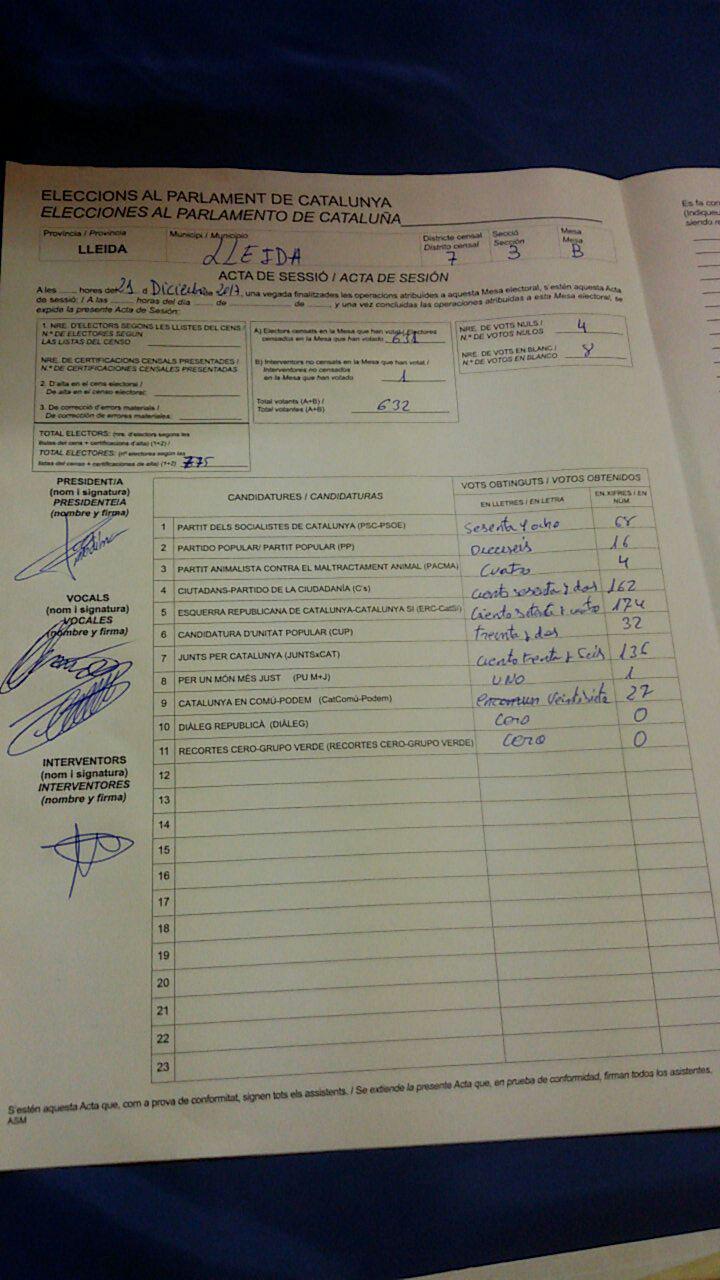 ELECCIONS AL PARLAMENT DE CATALUNYA
ELECCIONES AL PARLAMENTO DE CATALUÑA
Província / Provincia
LLEIDA
Municipi / Municipio
LLEIDA
Districte censal
Distrito censal
7
Secció
Sección
3
Mesa
Mesa
B
ACTA DE SESSIÓ / ACTA DE SESIÓN
A les hores del 21 d Diciembre de 2017, una vegada finalitzades les operacions atribuides a aquesta Mesa electoral, s'estén aquesta Acta
de sessió: / A las horas del día de de , y una vez concluidas las operaciones atribuidas a esta Mesa electoral, se
expide la presente Acta de Sesión:
1. NRE. D'ELECTORS SEGONS LES LLISTES DEL CENS /
N.º DE ELECTORES SEGÚN
LAS LISTAS DEL CENSO
NRE. DE CERTIFICACIONS CENSALS PRESENTADES /
N.º DE CERTIFICACIONES CENSALES PRESENTADAS
2. D'alta en el cens electoral /
De alta en el censo electoral:
3. De correcció d'errors materials /
De corrección de errores materiales:
TOTAL ELECTORS: (nre. d'electors segons les
llistes del cens + certificacions d'alta) (1+2) /
TOTAL ELECTORES: (nº electores según las
listas del censo + certificaciones de alta) (1+2) 775
A) Electors censats en la Mesa que han votat / Electores
censados en la Mesa que han votado 631
B) Interventors no censats en la Mesa que han votat /
Interventores no censados
en la Mesa que han votado 1
Total votants (A+B) /
Total votantes (A+B) 632
NRE. DE VOTS NULS / 4
N.º DE VOTOS NULOS
NRE. DE VOTS EN BLANC / 8
N.º DE VOTOS EN BLANCO
PRESIDENT/A
(nom i signatura)
PRESIDENTE/A
(nombre y firma)
VOCALS
(nom i signatura)
VOCALES
(nombre y firma)
INTERVENTORS
(nom i signatura)
INTERVENTORES
(nombre y firma)
CANDIDATURES / CANDIDATURAS
VOTS OBTINGUTS / VOTOS OBTENIDOS
EN LLETRES / EN LETRA
EN XIFRES / EN
NÚM.
1 PARTIT DELS SOCIALISTES DE CATALUNYA (PSC-PSOE) Sesenta y ocho 68
2 PARTIDO POPULAR/ PARTIT POPULAR (PP) Dieciseis 16
3 PARTIT ANIMALISTA CONTRA EL MALTRACTAMENT ANIMAL (PACMA) Cuatro 4
4 CIUTADANS-PARTIDO DE LA CIUDADANÍA (C's) ciento sesenta y dos 162
5 ESQUERRA REPUBLICANA DE CATALUNYA-CATALUNYA SÍ (ERC-CatSí) Ciento setenta y cuatro 174
6 CANDIDATURA D'UNITAT POPULAR (CUP) treinta y dos 32
7 JUNTS PER CATALUNYA (JUNTSxCAT) ciento treinta y seis 136
8 PER UN MÓN MÉS JUST (PU M+J) UNO 1
9 CATALUNYA EN COMÚ-PODEM (CatComú-Podem) Veintisiete 27
10 DIÀLEG REPUBLICÀ (DIÀLEG) Cero 0
11 RECORTES CERO-GRUPO VERDE (RECORTES CERO-GRUPO VERDE) cero 0
12
13
14
15
16
17
18
19
20
21
22
23
S'estén aquesta Acta que, com a prova de conformitat, signen tots els assistents. / Se extiende la presente Acta que, en prueba de conformidad, firman todos los asistentes.
ASM
Es fa con
(Indiqueu
siendo re